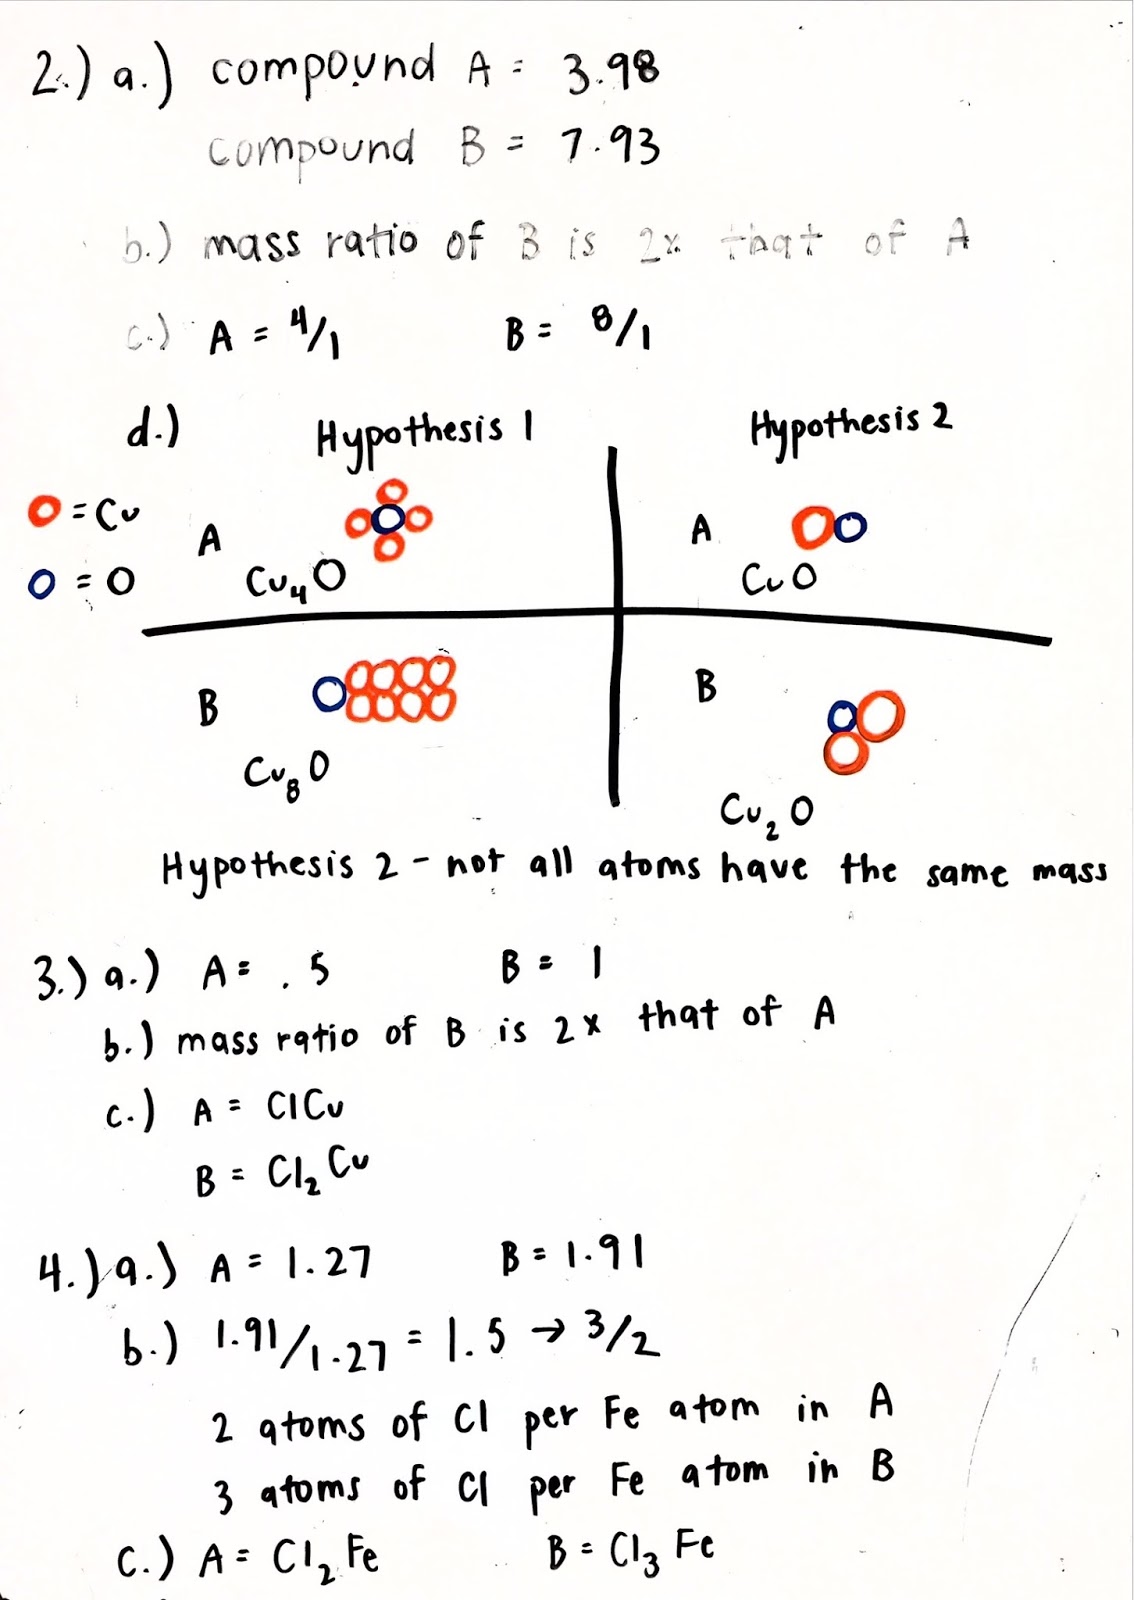 2.) a.) compound A = 3.98
compound B = 7.93
b.) mass ratio of B is 2x that of A
c.) A = 4/1 B = 8/1
d.) Hypothesis 1 Hypothesis 2
O = Cu
O = O
A
Cu₄O
A
CuO
B
Cu₈O
B
Cu₂O
Hypothesis 2 - not all atoms have the same mass
3.) a.) A = .5 B = 1
b.) mass ratio of B is 2x that of A
c.) A = ClCu
B = Cl₂Cu
4.) a.) A = 1.27 B = 1.91
b.) 1.91/1.27 = 1.5 → 3/2
2 atoms of Cl per Fe atom in A
3 atoms of Cl per Fe atom in B
c.) A = Cl₂Fe B = Cl₃Fe